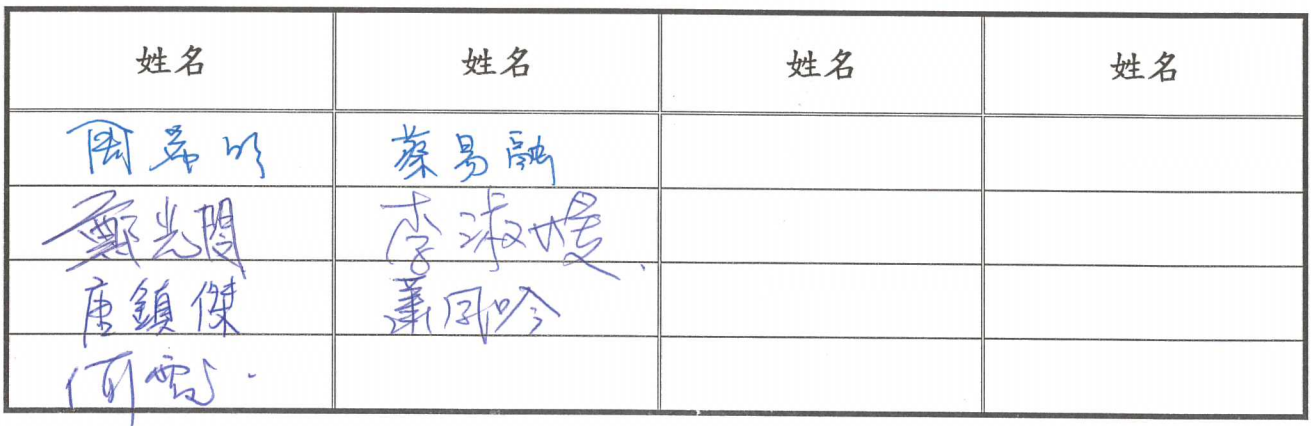 姓名 姓名 姓名 姓名
周 蔡易
鄭光閔 李淑媛
唐鎮傑 蕭鳳吟
何